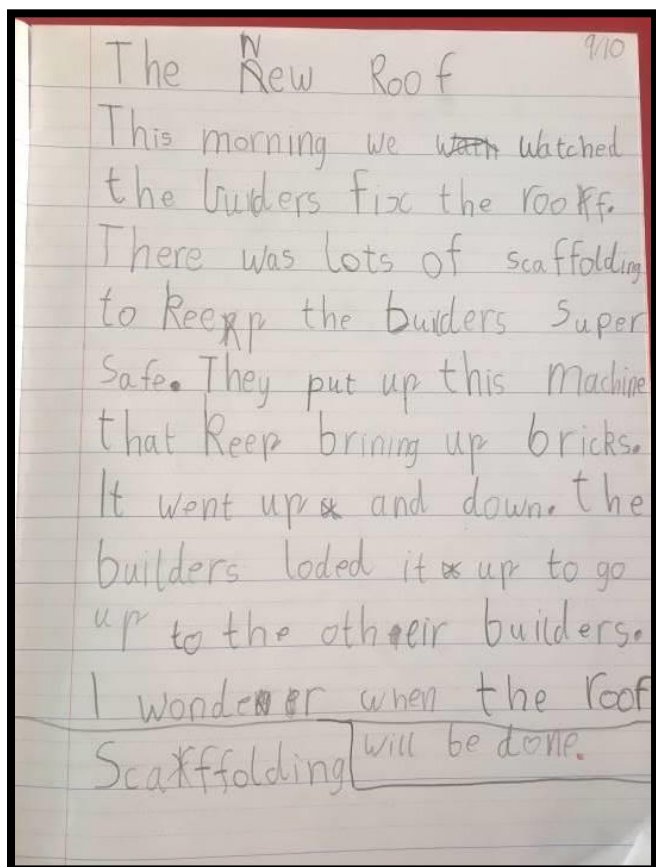 9/10
The New Roof
This morning we watched
the buiders fix the roof.
There was lots of scaffolding
to keep the buiders super
safe. They put up this machine
that keep brining up bricks.
It went up and down. the
builders loded it up to go
up to the otheir builders.
I wonder when the roof
will be done.
Scaffolding